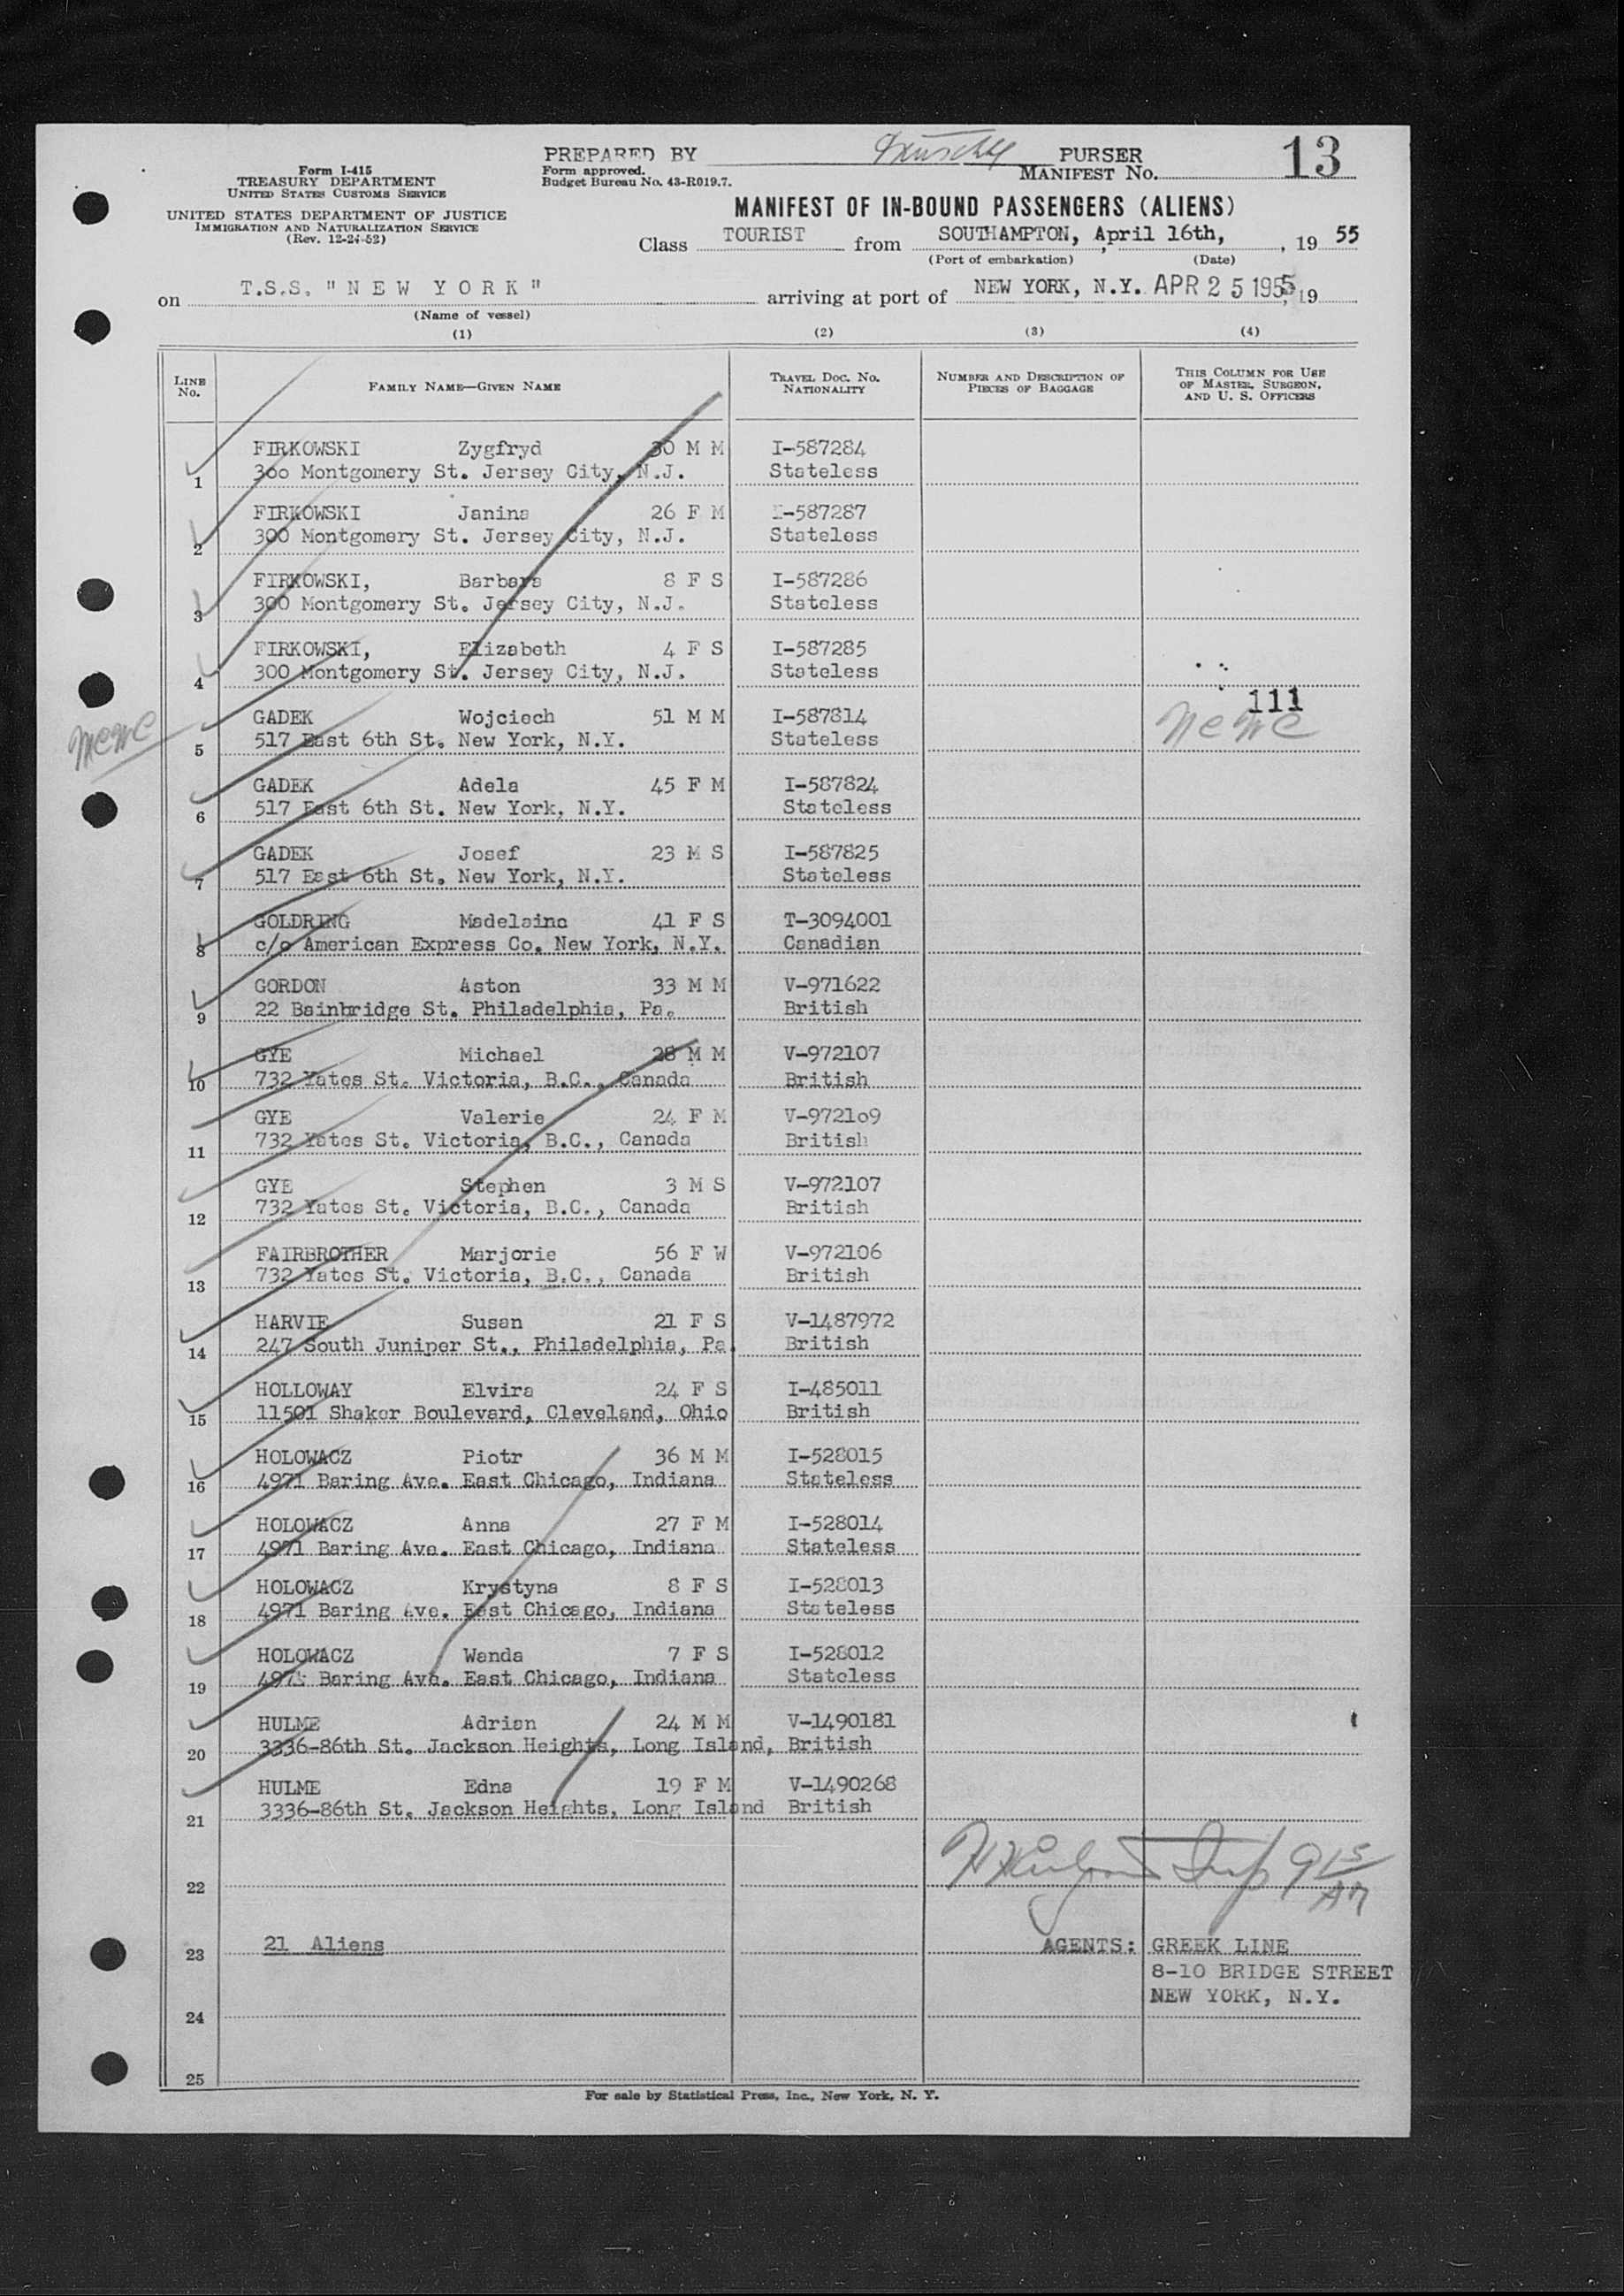 PREPARED BY PURSER
Form I-415
TREASURY DEPARTMENT
UNITED STATES CUSTOMS SERVICE
Form approved.
Budget Bureau No. 43-R019.7.
MANIFEST No. 13
UNITED STATES DEPARTMENT OF JUSTICE
IMMIGRATION AND NATURALIZATION SERVICE
(Rev. 12-24-52)
MANIFEST OF IN-BOUND PASSENGERS (ALIENS)
Class TOURIST from SOUTHAMPTON, April 16th, , 19 55
(Port of embarkation) (Date)
on T.S.S. "NEW YORK" arriving at port of NEW YORK, N.Y. APR 25 1955, 19
(Name of vessel)
(1) (2) (3) (4)
LINE No. FAMILY NAME—GIVEN NAME TRAVEL DOC. No. NATIONALITY NUMBER AND DESCRIPTION OF PIECES OF BAGGAGE THIS COLUMN FOR USE OF MASTER, SURGEON, AND U. S. OFFICERS
FIRKOWSKI Zygfryd 30 M M I-587284
1 3oo Montgomery St. Jersey City, N.J. Stateless
FIRKOWSKI Janina 26 F M I-587287
2 300 Montgomery St. Jersey City, N.J. Stateless
FIRKOWSKI, Barbara 8 F S I-587286
3 300 Montgomery St. Jersey City, N.J. Stateless
FIRKOWSKI, Elizabeth 4 F S I-587285
4 300 Montgomery St. Jersey City, N.J. Stateless
111
GADEK Wojciech 51 M M I-587814
5 517 East 6th St. New York, N.Y. Stateless
GADEK Adela 45 F M I-587824
6 517 East 6th St. New York, N.Y. Stateless
GADEK Josef 23 M S I-587825
7 517 East 6th St. New York, N.Y. Stateless
GOLDRING Madelaine 41 F S T-3094001
8 c/o American Express Co. New York, N.Y. Canadian
GORDON Aston 33 M M V-971622
9 22 Bainbridge St. Philadelphia, Pa. British
GYE Michael 28 M M V-972107
10 732 Yates St. Victoria, B.C., Canada British
GYE Valerie 24 F M V-9721o9
11 732 Yates St. Victoria, B.C., Canada British
GYE Stephen 3 M S V-972107
12 732 Yates St. Victoria, B.C., Canada British
FAIRBROTHER Marjorie 56 F W V-972106
13 732 Yates St. Victoria, B.C., Canada British
HARVIE Susan 21 F S V-1487972
14 247 South Juniper St., Philadelphia, Pa. British
HOLLOWAY Elvira 24 F S I-485011
15 11501 Shaker Boulevard, Cleveland, Ohio British
HOLOWACZ Piotr 36 M M I-528015
16 4971 Baring Ave. East Chicago, Indiana Stateless
HOLOWACZ Anna 27 F M I-528014
17 4971 Baring Ave. East Chicago, Indiana Stateless
HOLOWACZ Krystyna 8 F S I-528013
18 4971 Baring Ave. East Chicago, Indiana Stateless
HOLOWACZ Wanda 7 F S I-528012
19 4971 Baring Ave. East Chicago, Indiana Stateless
HULME Adrian 24 M M V-1490181
20 3336-86th St. Jackson Heights, Long Island, British
HULME Edna 19 F M V-1490268
21 3336-86th St. Jackson Heights, Long Island British
22
23 21 Aliens AGENTS: GREEK LINE
8-10 BRIDGE STREET
NEW YORK, N.Y.
24
25
For sale by Statistical Press, Inc., New York, N. Y.